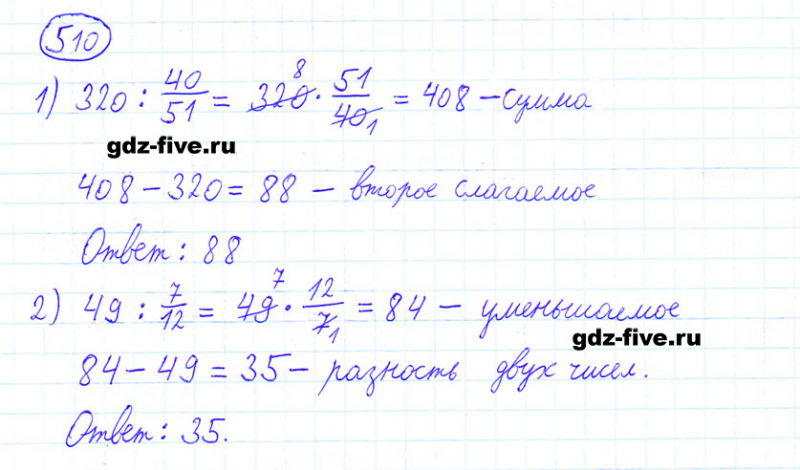 510
1) 320 : 40/51 = 320 8 · 51/40 1 = 408 – сумма
gdz-five.ru
408 – 320 = 88 – второе слагаемое
Ответ: 88
2) 49 : 7/12 = 49 7 · 12/7 1 = 84 – уменьшаемое
gdz-five.ru
84 – 49 = 35 – разность двух чисел.
Ответ: 35.